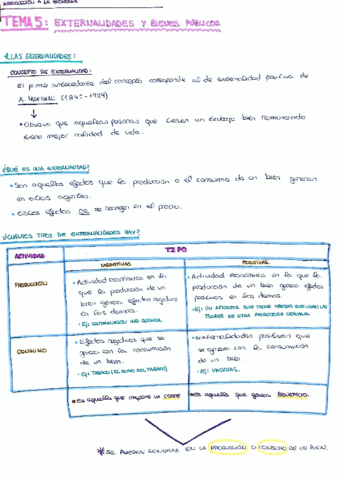 INTRODUCCIÓN A LA ECONOMÍA
TEMA 5: EXTERNALIDADES Y BIENES PÚBLICOS
1. LAS EXTERNALIDADES:
CONCEPTO DE EXTERNALIDAD:
El primer antecedente del concepto corresponde al de externalidad positiva de
A. MARSHALL (1842-1924)
• Observó que aquellas personas que tienen un trabajo bien remunerado
tiene mejor calidad de vida.
¿QUÉ ES UNA EXTERNALIDAD?
• Son aquellos efectos que la producción o el consumo de un bien generan
en otros agentes.
• Estos efectos no se recogen en el precio.
¿CUÁNTOS TIPOS DE EXTERNALIDADES HAY?
ACTIVIDAD
TIPO
NEGATIVAS
POSITIVAS
PRODUCCIÓN
• Actividad económica en la
que la producción de un
bien genera efectos negativos
en los demás.
• Ej: CONTAMINACIÓN
• Actividad económica en la que la
producción de un bien genera efectos
positivos en los demás.
• Ej: UN APICULTOR QUE
CONSUMO
• Efectos negativos que se
generan con la consumación
de un bien.
• Ej: TABACO (EL HUMO DEL TABACO)
• Externalidades positivas que
se generan con la consumación
de un bien.
• Ej: VACUNAS.
• Es aquella que impone un COSTE
• Es aquella que genera BENEFICIO.
* SE PUEDEN GENERAR EN LA PRODUCCIÓN O CONSUMO DE UN BIEN.